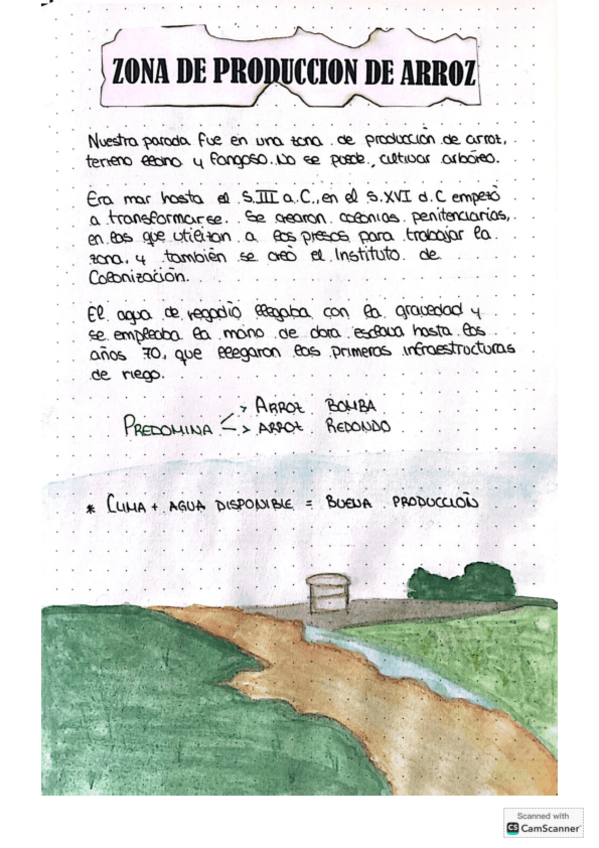 ZONA DE PRODUCCION DE ARROZ
Nuestra parada fue en una zona de producción de arroz,
terreno llano y fangoso. No se puede cultivar arbóreo.
Era mar hasta el S.III a.C., en el S.XVI d.C empezó
a transformarse. Se crearon colonias penitenciarias,
en las que utilizan a los presos para trabajar la
zona, y también se creó el Instituto de
Colonización.
El agua de regadío llegaba con la gravedad y
se empleaba la mano de obra esclava hasta los
años 70, que llegaron las primeras infraestructuras
de riego.
PREDOMINA > ARROZ BOMBA
> ARROZ REDONDO
* CLIMA + AGUA DISPONIBLE = BUENA PRODUCCIÓN
Scanned with
CS CamScanner